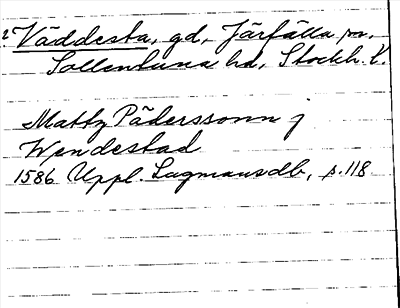 2 Väddesta, gd, Järfälla sn,
Sollentuna hd, Stockh. l.
Mattz Päderssonn j
Wendestad
1586 Uppl. Lagmansdb, s. 118